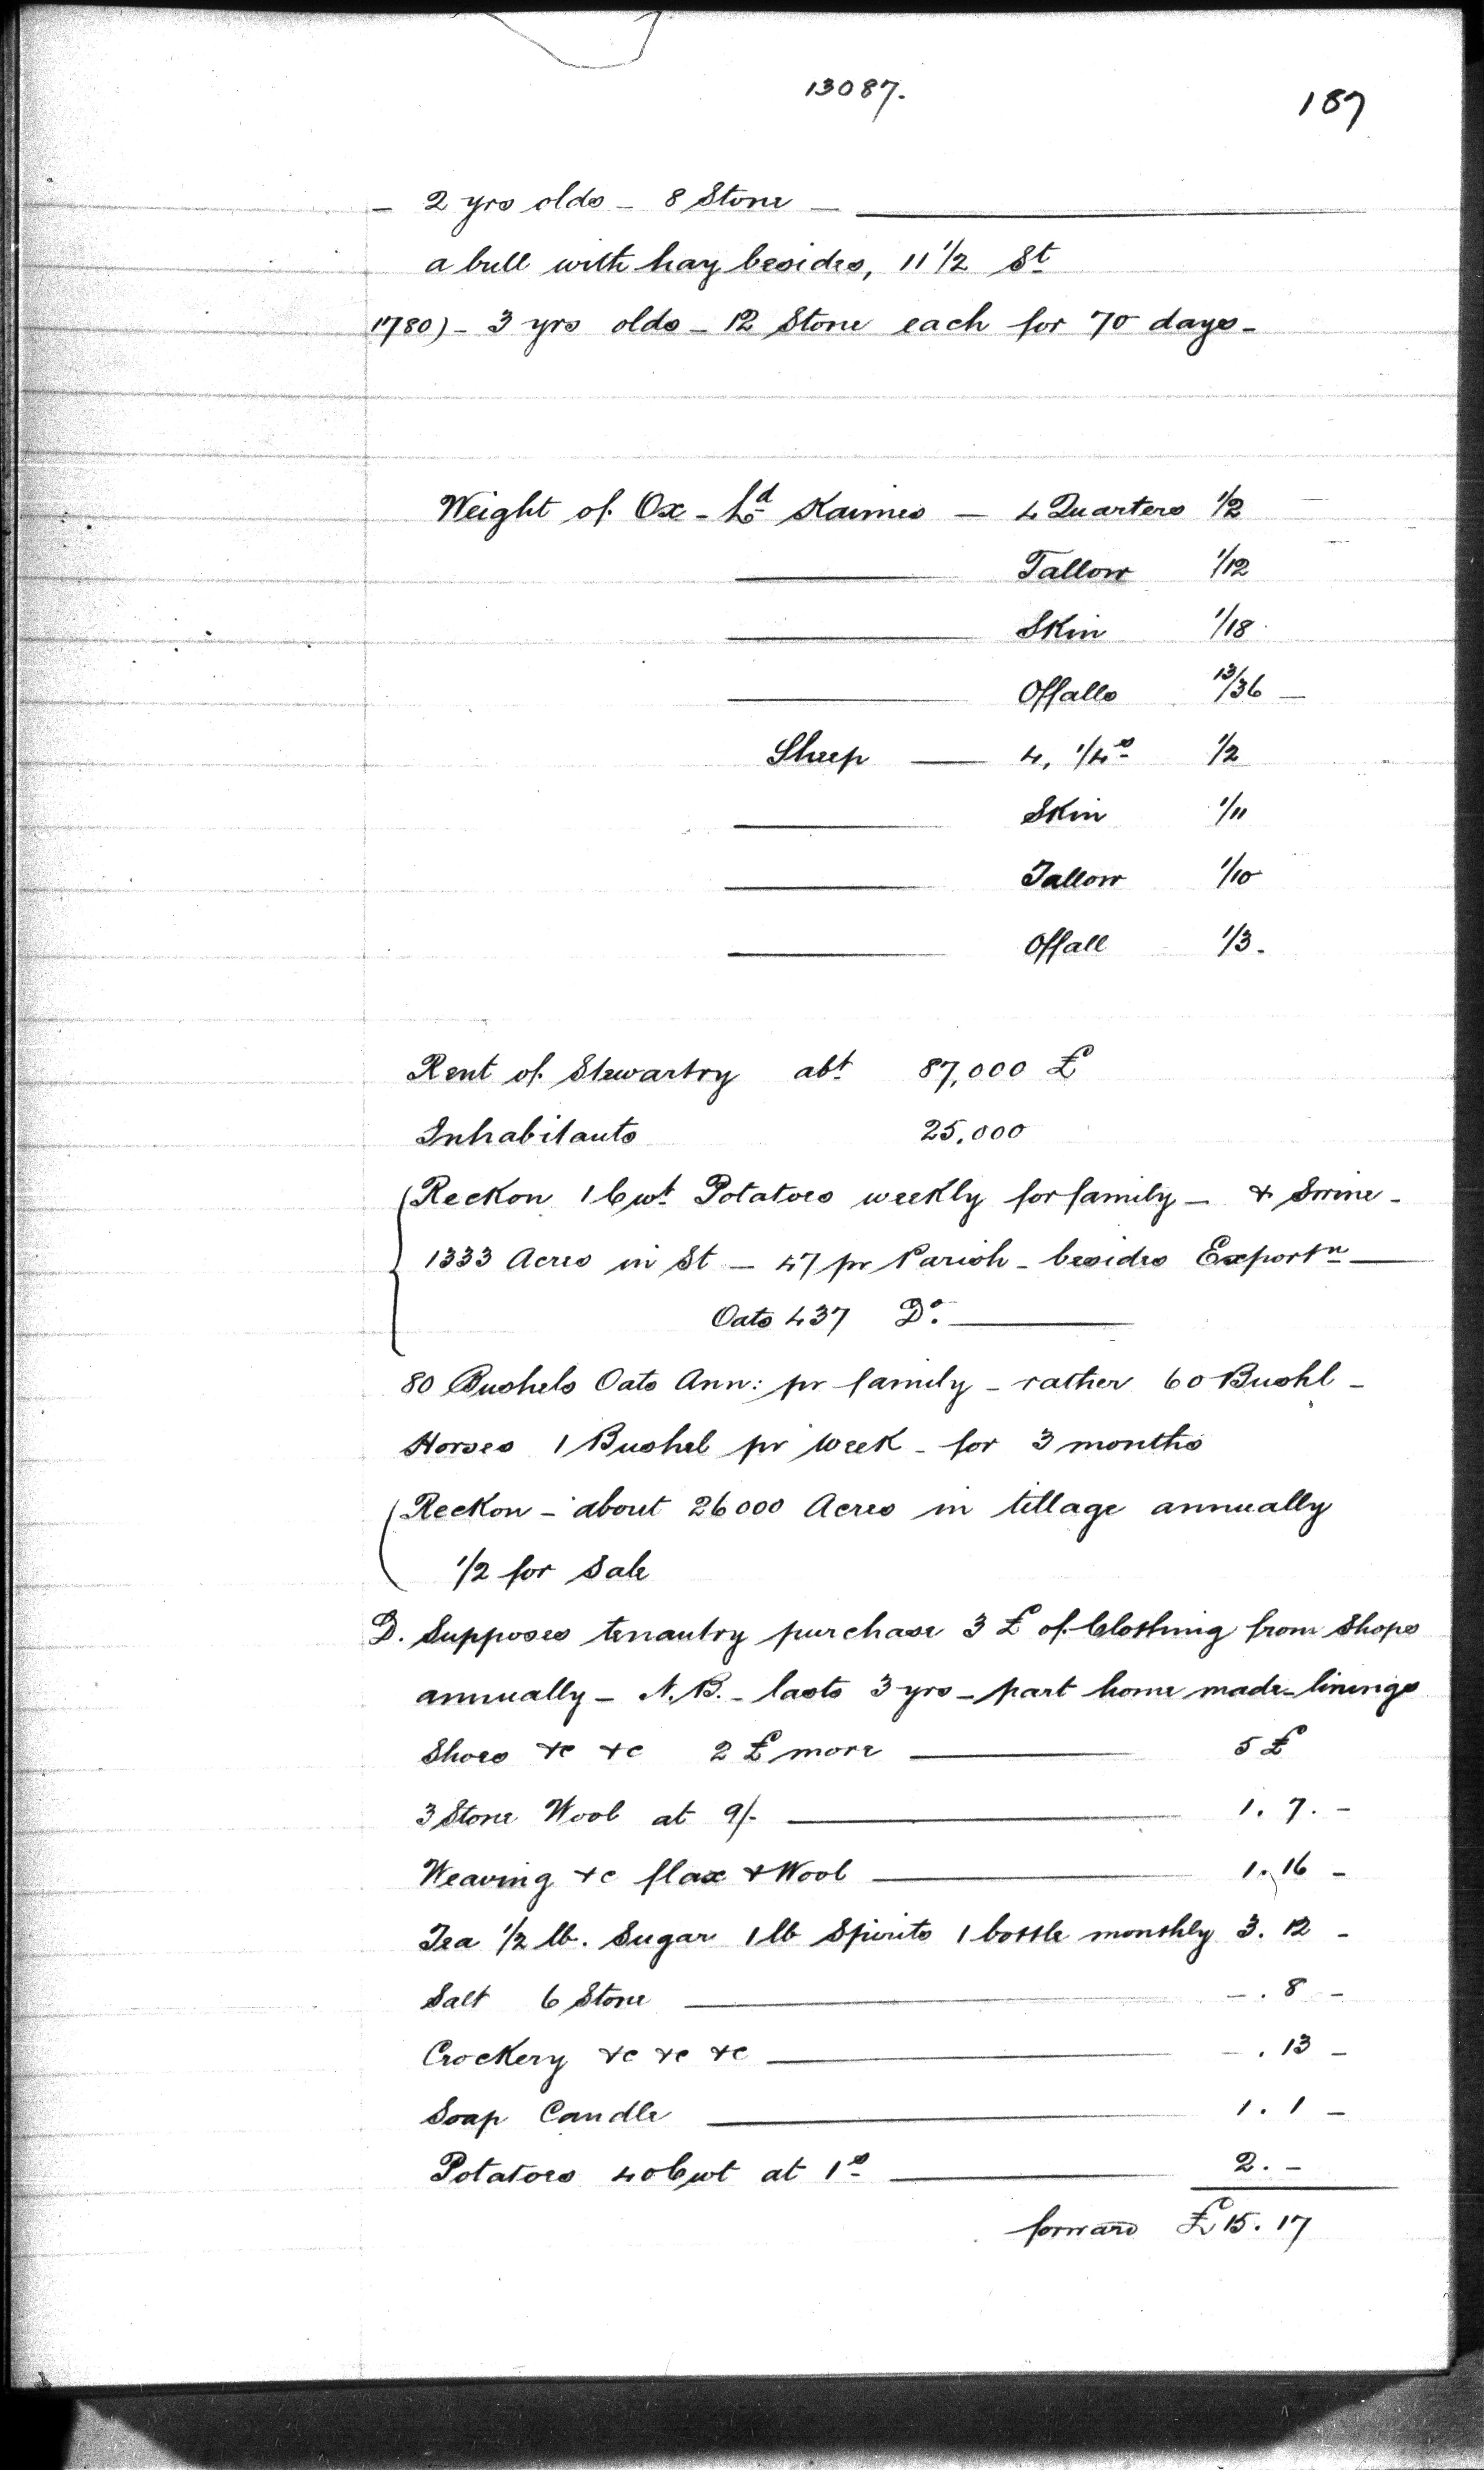 13087.
187
- 2 yrs olds - 8 Stone -
a bull with hay besides, 11 1/2 St
1780) - 3 yrs olds - 12 Stone each for 70 days -
Weight of Ox - Ld Kaimes - 4 Quarters 1/2
Tallow 1/12
Skin 1/18
Offalls 13/36 -
Sheep - 4, 1/4s 1/2
Skin 1/11
Tallow 1/10
Offall 1/3.
Rent of Stewartry abt 87,000 £
Inhabitants 25,000
Reckon 1 Cwt Potatoes weekly for family - & Swine -
1333 Acres in St - 47 pr Parish - besides Exportn -
Oats 437 Do. -
80 Bushels Oats Ann: pr family - rather 60 Bushl -
Horses 1 Bushel pr Week - for 3 months
Reckon - about 26000 Acres in tillage annually
1/2 for Sale
D. Supposes tenantry purchase 3 £ of Clothing from Shops
annually - N.B. - lasts 3 yrs - part home made - linings
Shoes &c &c 2 £ more - 5 £
3 Stone Wool at 9/- - 1. 7. -
Weaving &c flax & Wool - 1. 16 -
Tea 1/2 lb. Sugar 1 lb Spirits 1 bottle monthly 3. 12 -
Salt 6 Stone - -. 8 -
Crockery &c &c &c - -. 13 -
Soap Candle - 1. 1 -
Potatoes 40 Cwt at 1s - 2. -
forward £ 15. 17